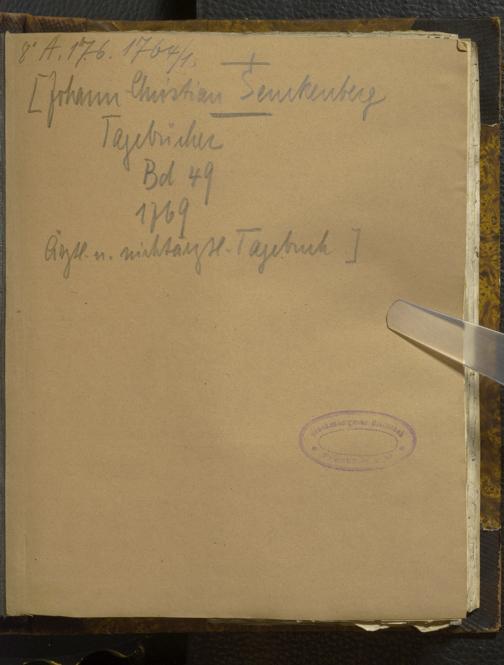 8° A. 176. 1764/1.
[Johann Christian Senckenberg
Tagebücher
Bd 49
1769
Ärztl. u. nichtärztl. Tagebuch ]
Senckenbergische Bibliothek
Frankfurt a. M.